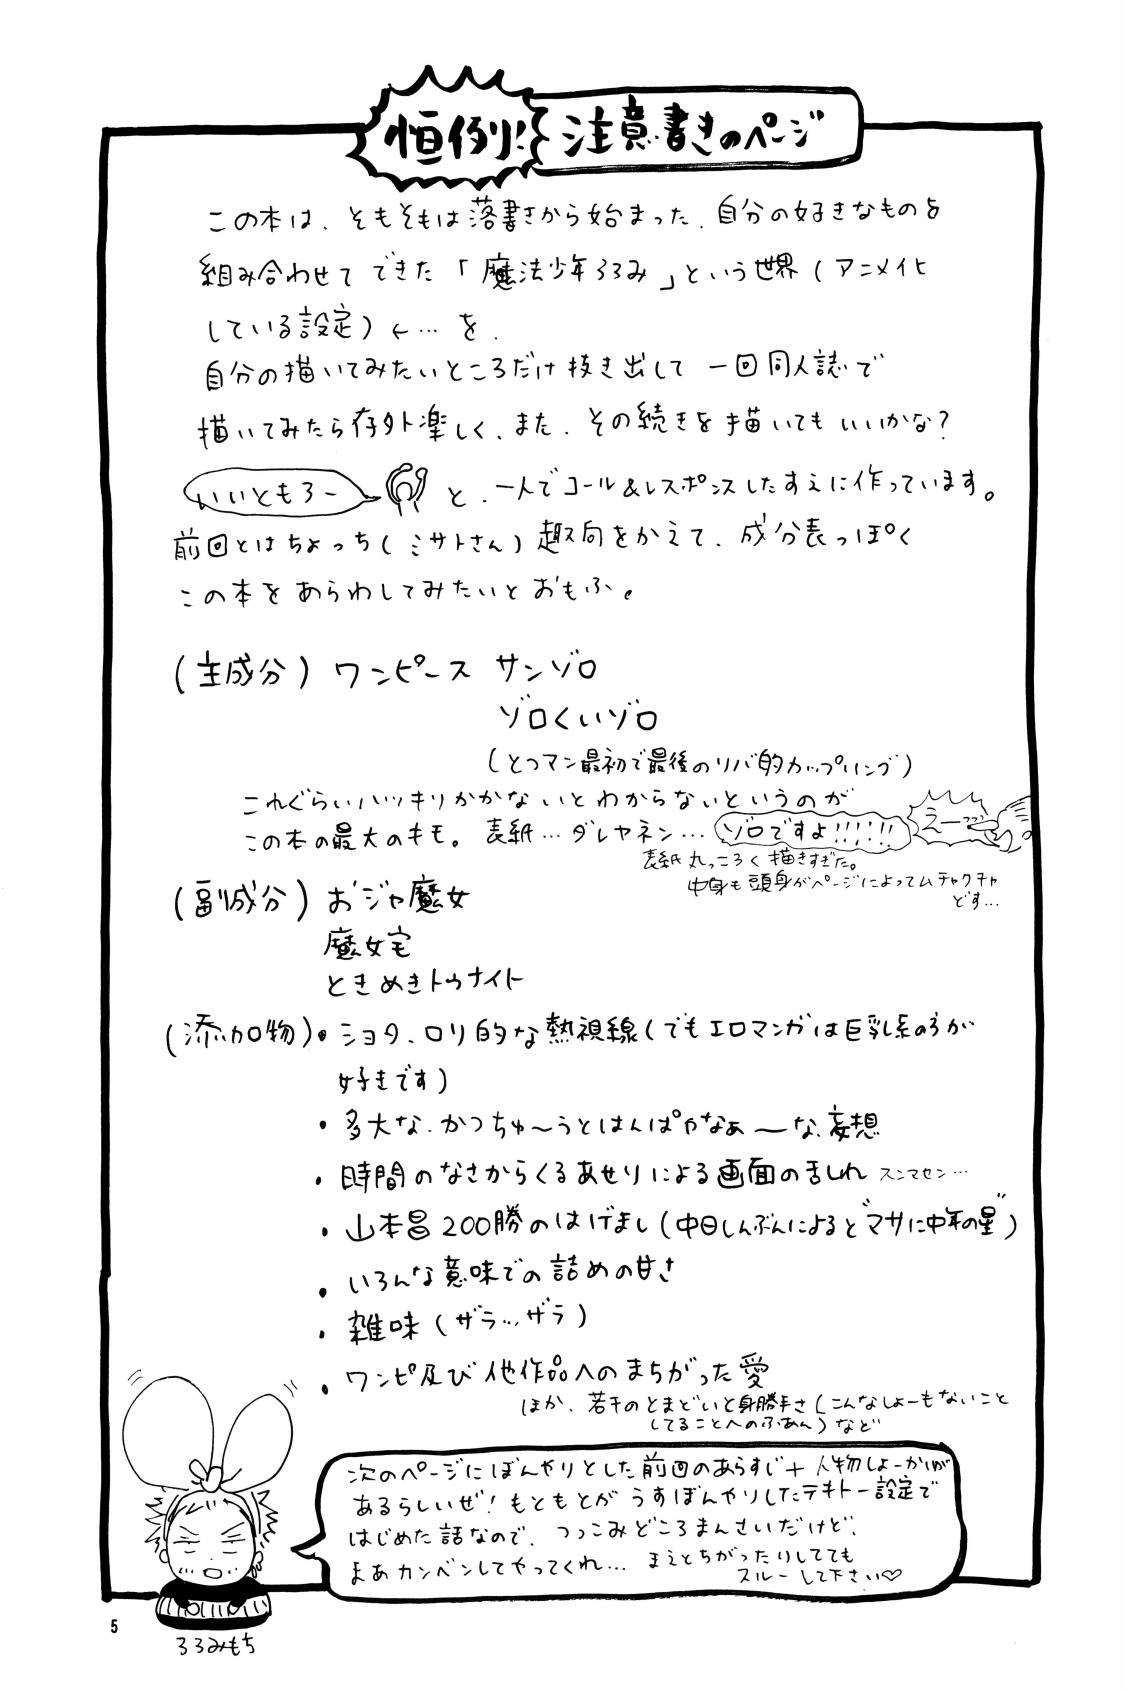 恒例! 注意書きのページ
この本は、そもそもは落書きから始まった、自分の好きなものを
組み合わせてできた「魔法少年ろろみ」という世界(アニメ化
している設定)←…を、
自分の描いてみたいところだけ抜き出して一回同人誌で
描いてみたら存外楽しく、また、その続きを描いてもいいかな?
いいともろー と、一人でコール&レスポンスしたすえに作っています。
前回とはちょっち(ミサトさん)趣向をかえて、成分表っぽく
この本をあらわしてみたいとおもふ。
(主成分) ワンピース サンゾロ
ゾロくいゾロ
(とつマン最初で最後のリバ的カップリング)
これぐらいハッキリかかないとわからないというのが
この本の最大のキモ。表紙…ダレヤネン… ゾロですよ!!!!!! えーっっっ
表紙丸っころく描きすぎた。
中身も頭身がページによってムチャクチャ
どす…
(副成分) おジャ魔女
魔女宅
ときめきトゥナイト
(添加物)・ショタ、ロリ的な熱視線(でもエロマンガは巨乳系の方が
好きです)
・多大な、かつちゅ〜うとはんぱやなぁ〜な、妄想
・時間のなさからくるあせりによる画面の乱れ スンマセン…
・山本昌200勝のはげまし(中日しんぶんによると"マサに中年の星")
・いろんな意味での詰めの甘さ
・雑味(ザラ…ザラ)
・ワンピ及び他作品へのまちがった愛
ほか、若干のとまどいと身勝手さ(こんなしょーもないこと
してることへのふあん)など
次のページにぼんやりとした前回のあらすじ+人物しょーかいが
あるらしいぜ!もともとがうすぼんやりしたテキトー設定で
はじめた話なので、つっこみどころまんさいだけど、
まあカンベンしてやってくれ… まえとちがったりしてても
スルーして下さい♡
ろろみもち
5